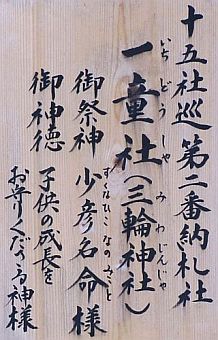 十五社巡第二番納札社
一童社(三輪神社)
いちどうしゃ みわじんじゃ
御祭神 少彦名命様
すくなひこなのみこと
御神徳 子供の成長を
お守りくださる神様